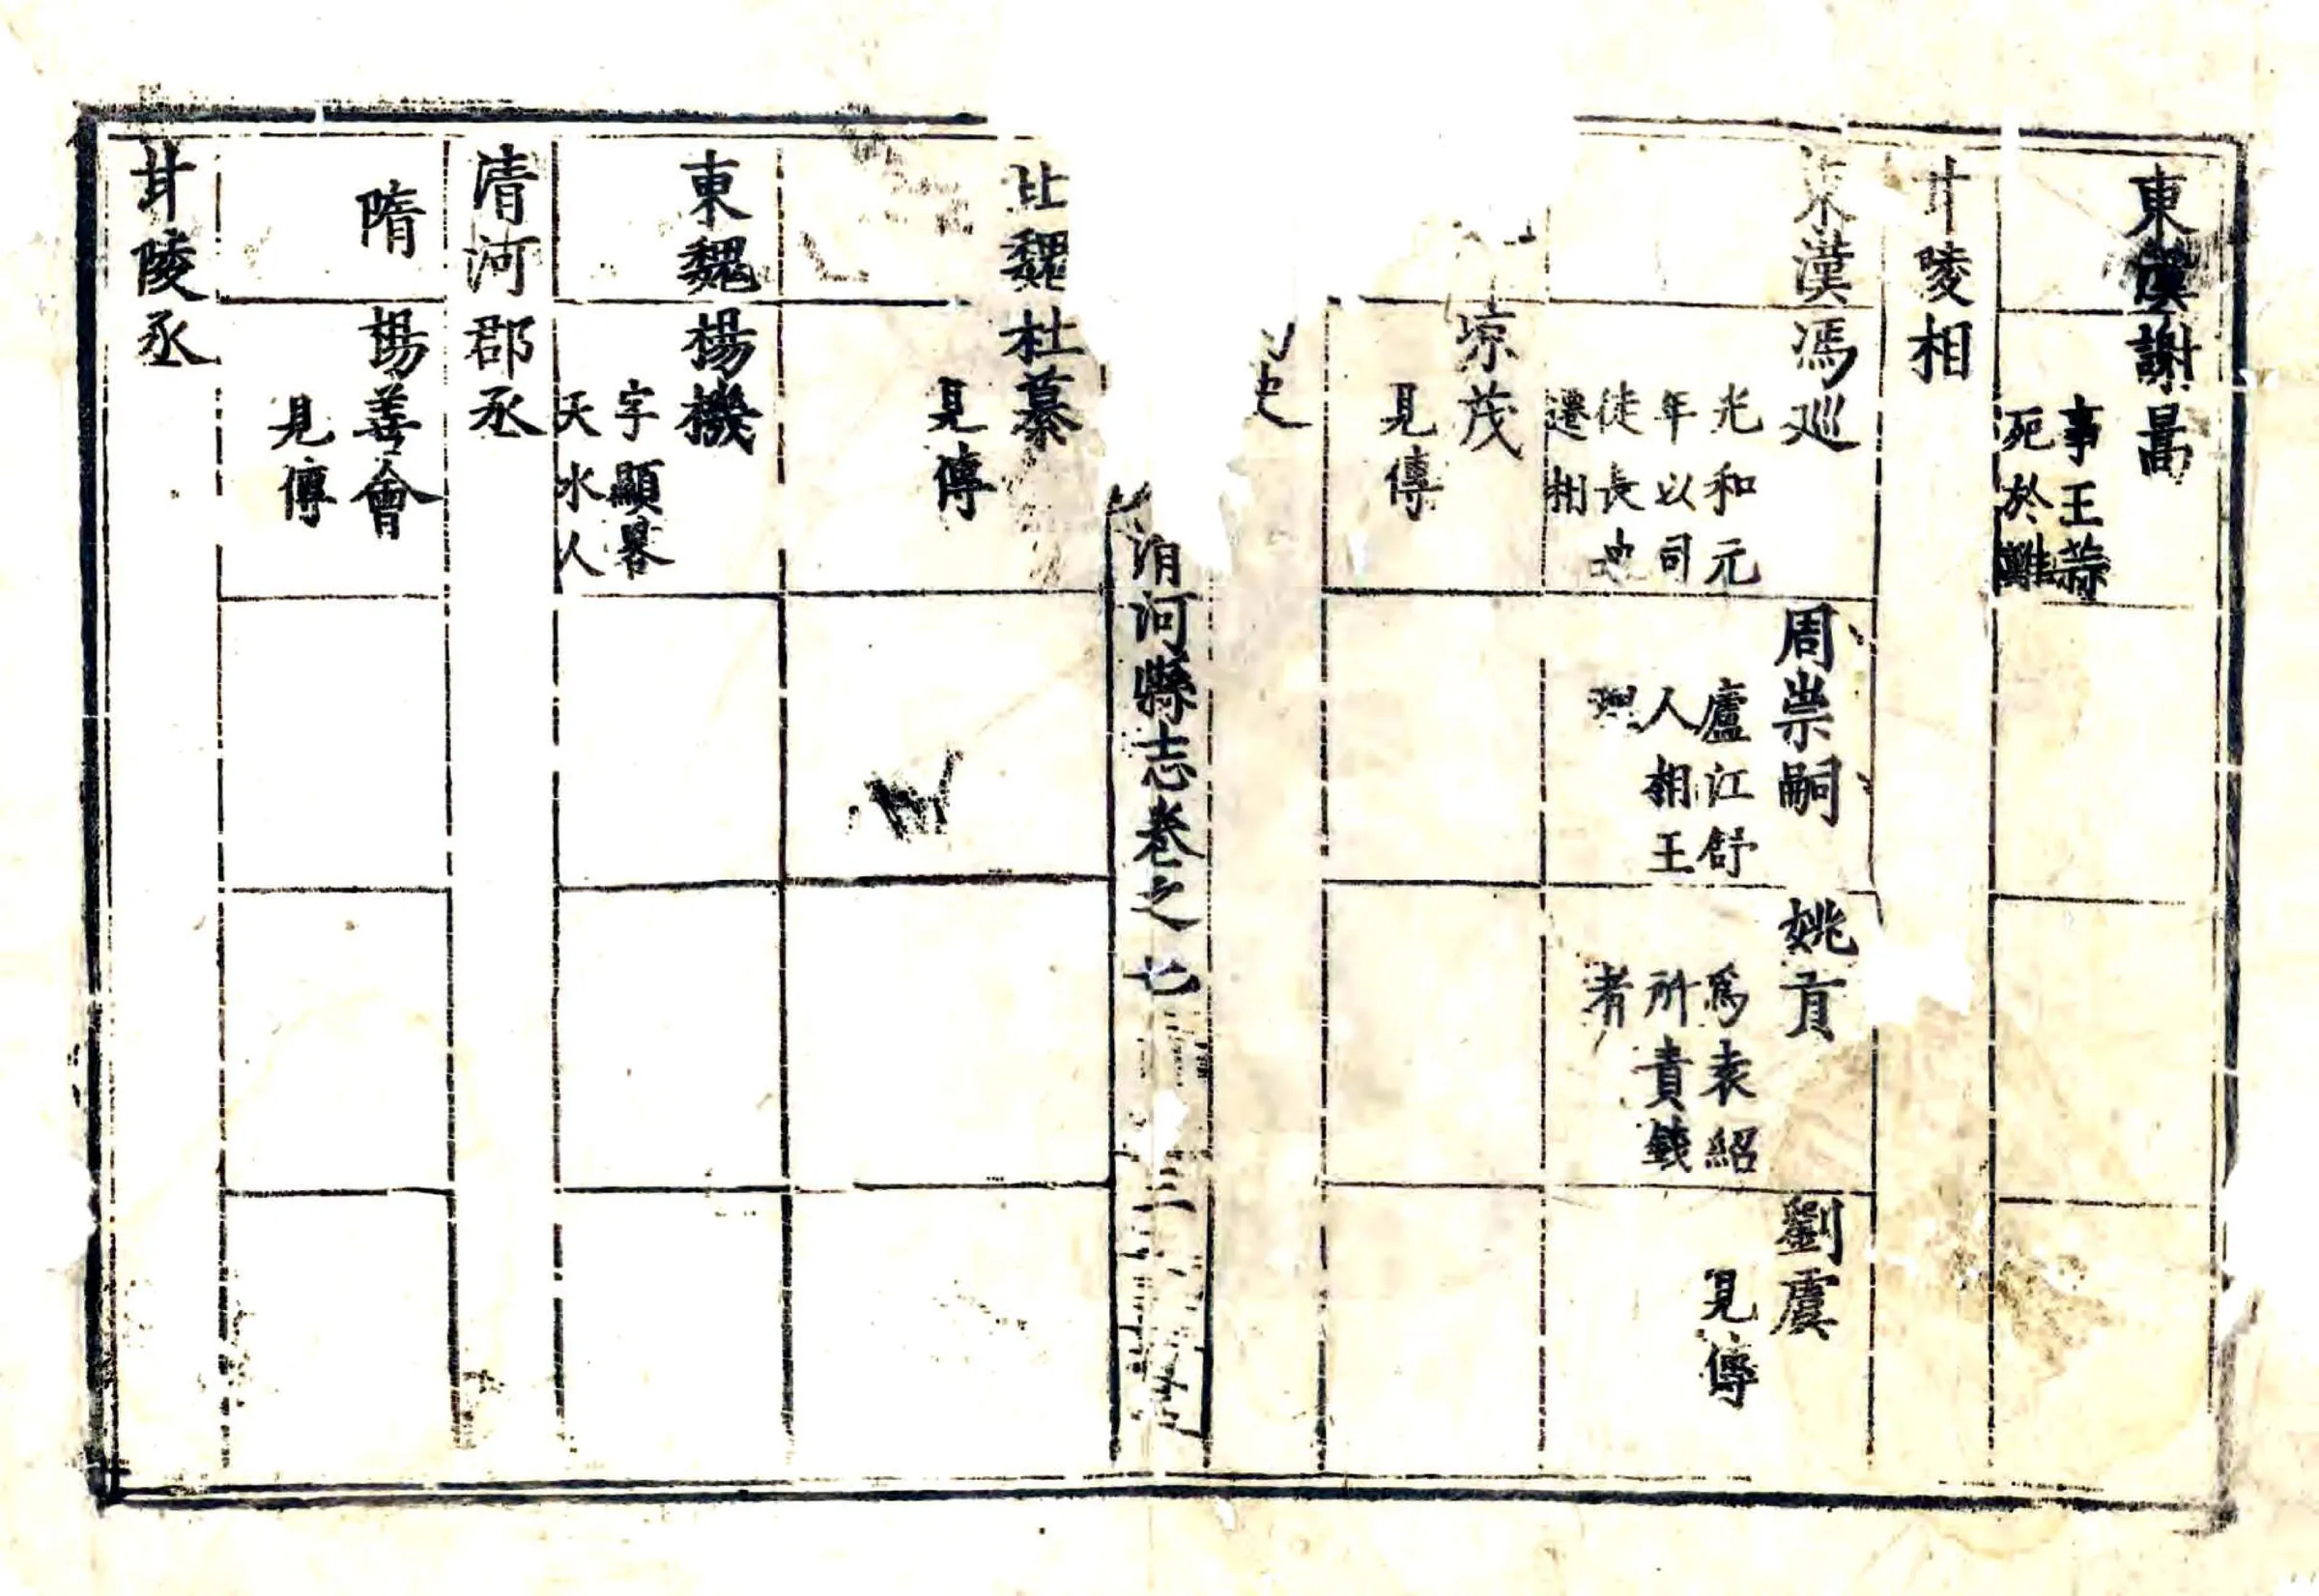 東漢謝暠
事王蒜
死於難
甘陵相
東漢馮巡
光和元
年以司
徒長史
遷相
周崇嗣
廬江舒
人相王
姚貢
為袁紹
所責錢
者
劉虞
見傳
涼茂
見傳
史
清河縣志卷之七
三
北魏杜纂
見傳
東魏楊機
字顯畧
天水人
清河郡丞
隋楊善會
見傳
甘陵丞